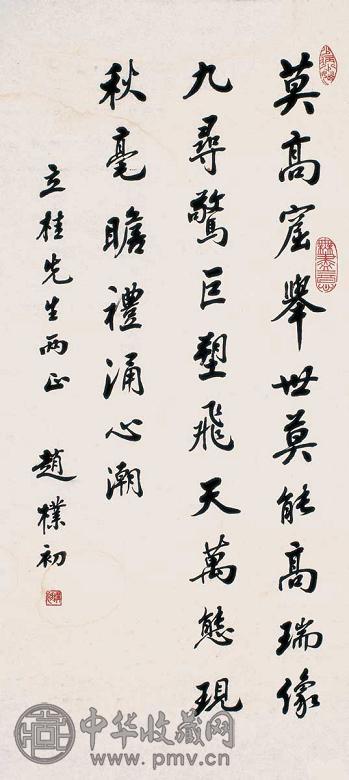 莫高窟舉世莫能高瑞像
九尋驚巨塑飛天萬態現
秋毫瞻禮涌心潮
立桂先生兩正
趙樸初
中华收藏网
www.pmv.cn